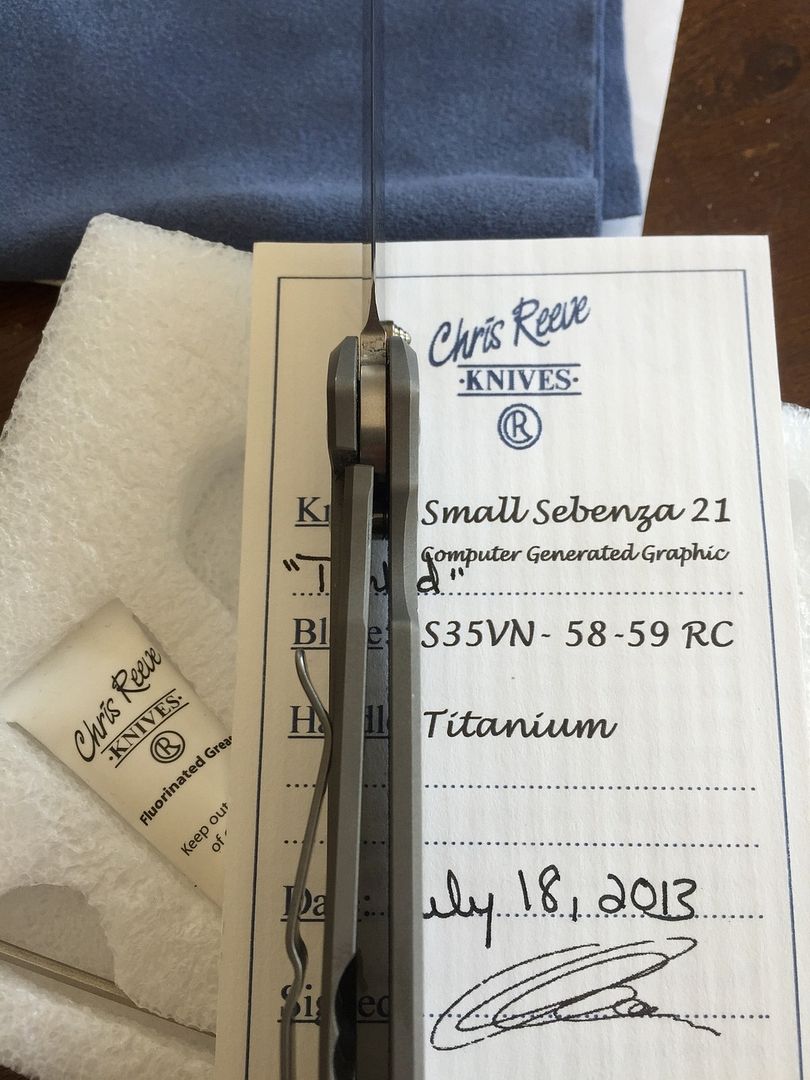 Chris Reeve
·KNIVES·
R
Small Sebenza 21
Computer Generated Graphic
S35VN - 58-59 RC
Titanium
July 18, 2013
Chris Reeve
·KNIVES·
R
Fluorinated Grea
Keep out
of